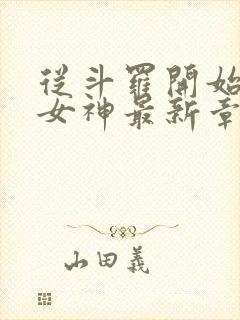 從斗羅開始
女神最新章
山田義